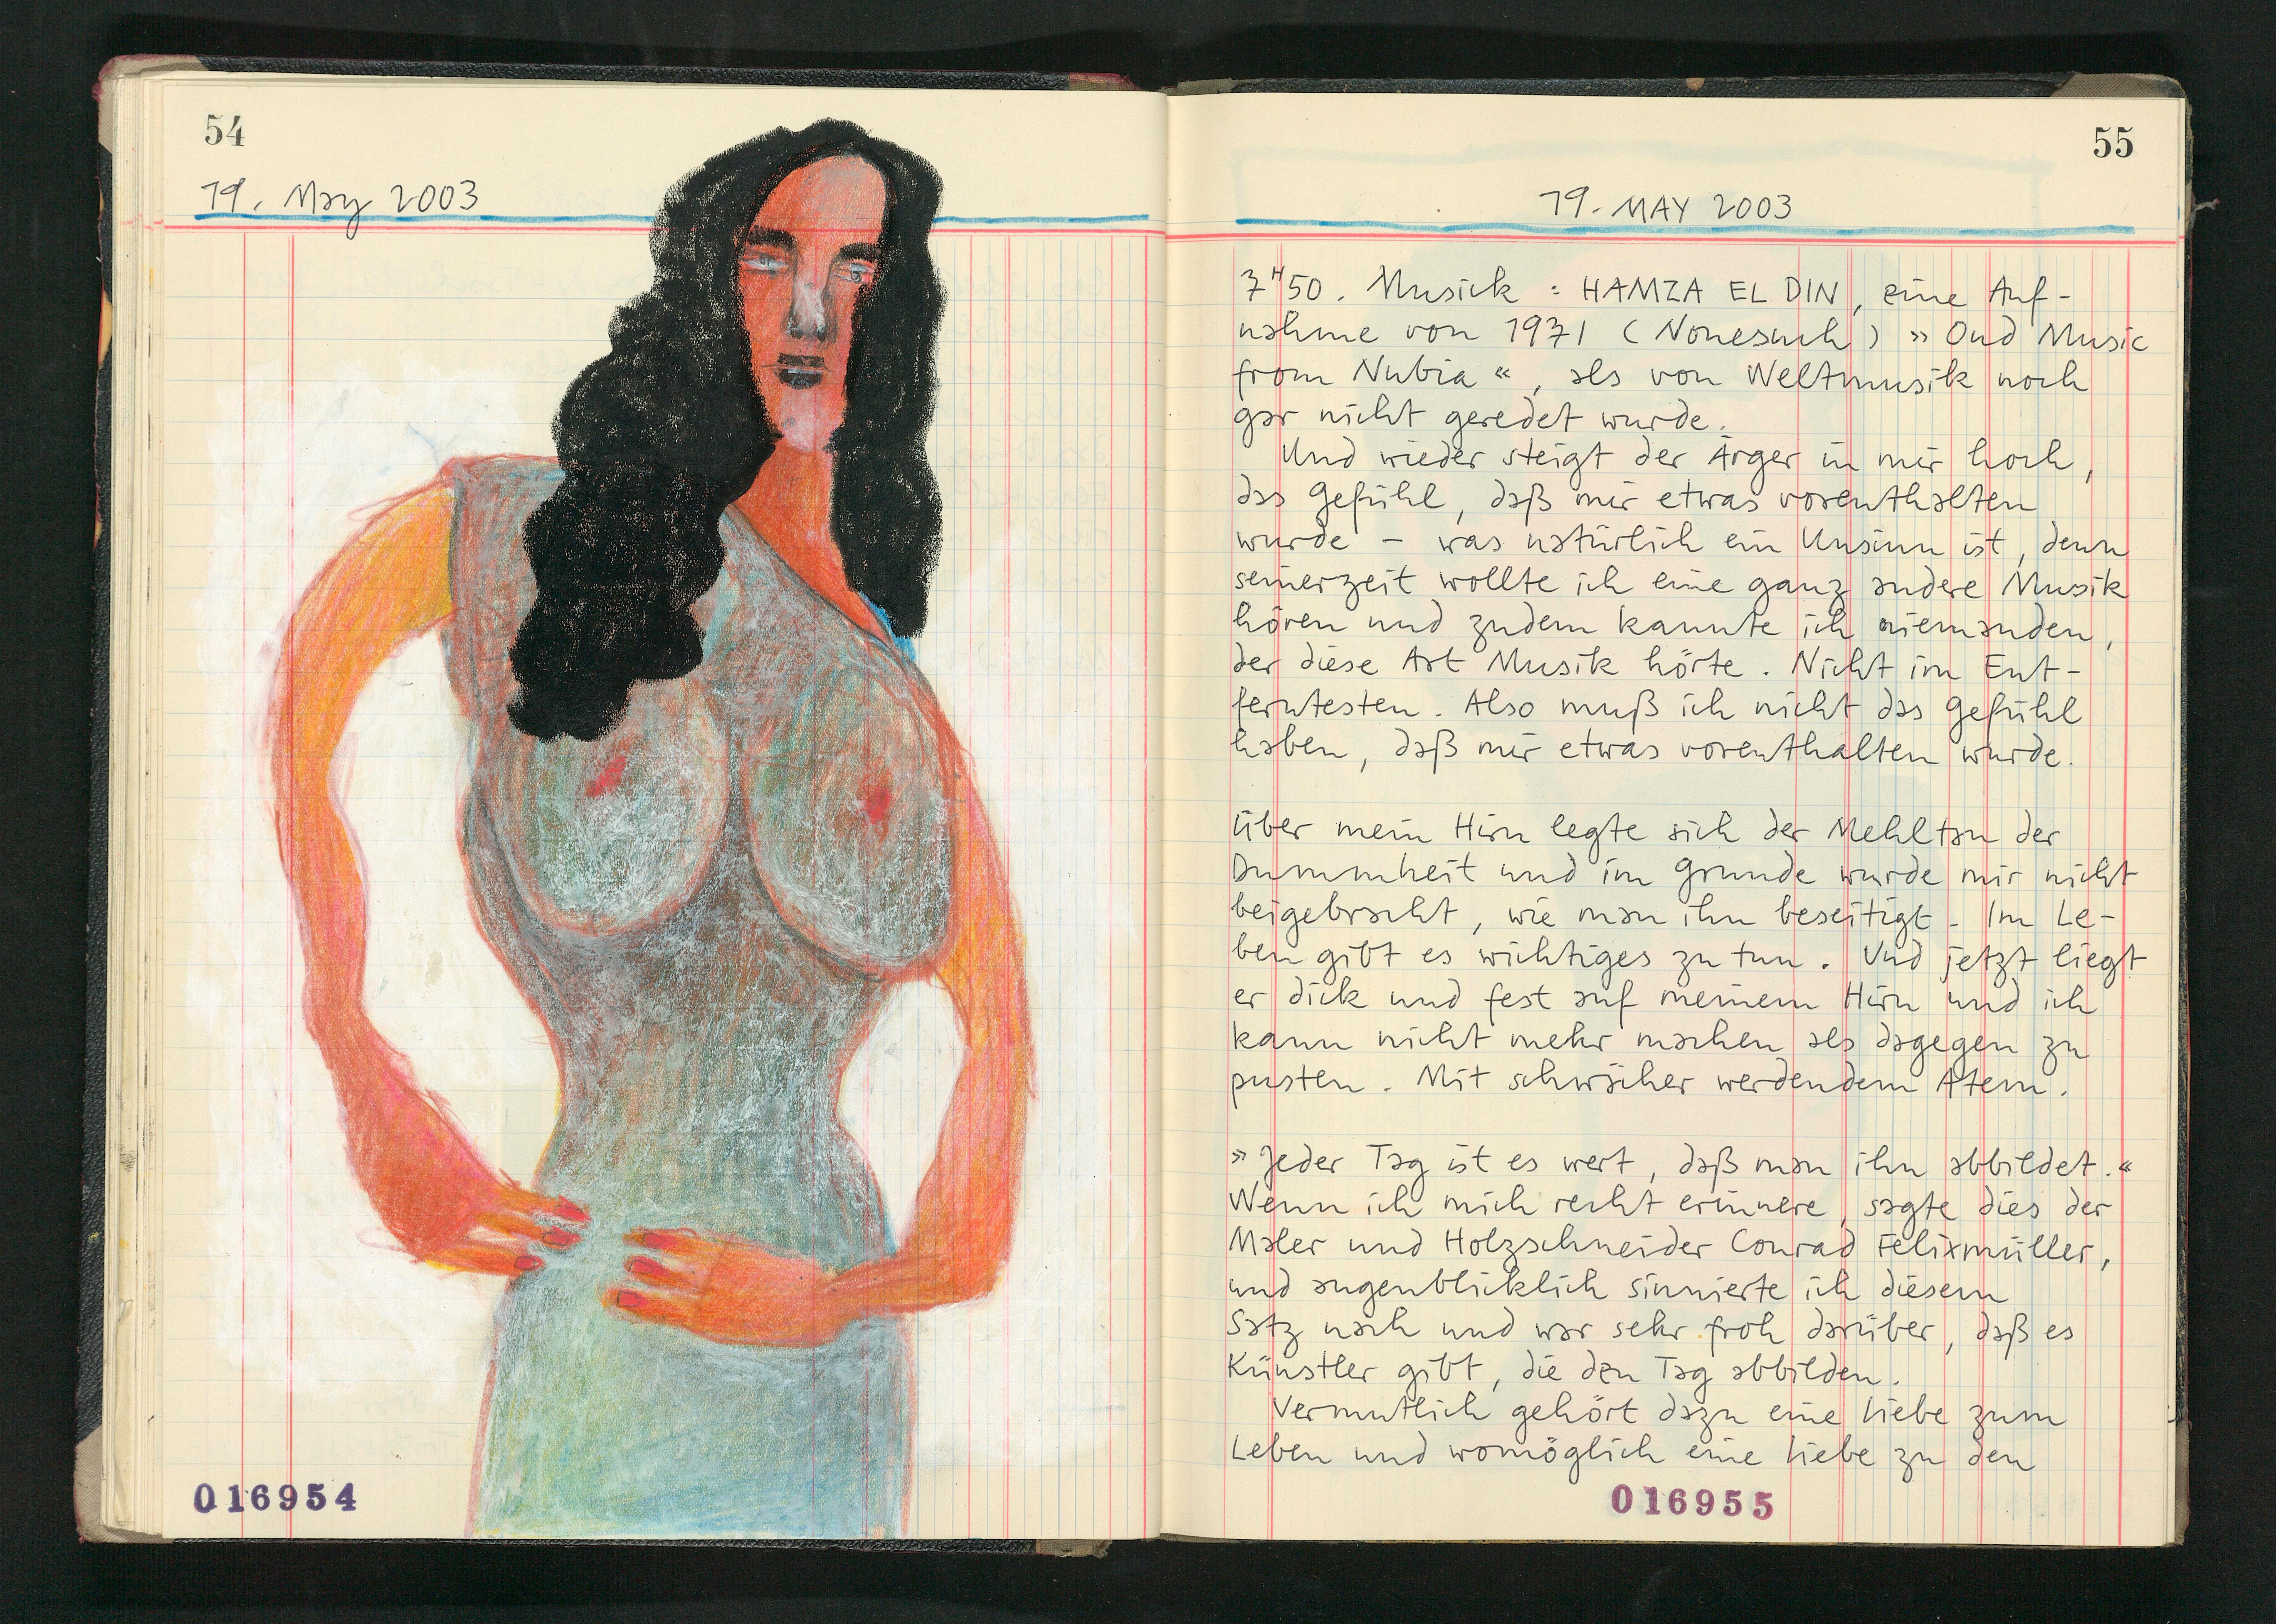 54
19. May 2003
016954
55
19. MAY 2003
7ᴴ50. Musick : HAMZA EL DIN, eine Auf-
nahme von 1971 (Nonesuch) »Oud Music
from Nubia«, als von Weltmusik noch
gar nicht geredet wurde.
Und wieder steigt der Ärger in mir hoch,
das Gefühl, daß mir etwas vorenthalten
wurde – was natürlich ein Unsinn ist, denn
seinerzeit wollte ich eine ganz andere Musik
hören und zudem kannte ich niemanden,
der diese Art Musik hörte. Nicht im Ent-
ferntesten. Also muß ich nicht das Gefühl
haben, daß mir etwas vorenthalten wurde.
Über mein Hirn legte sich der Mehltau der
Dummheit und im Grunde wurde mir nicht
beigebracht, wie man ihn beseitigt. Im Le-
ben gibt es wichtiges zu tun. Und jetzt liegt
er dick und fest auf meinem Hirn und ich
kann nicht mehr machen als dagegen zu
pusten. Mit schwächer werdendem Atem.
»Jeder Tag ist es wert, daß man ihn abbildet.«
Wenn ich mich recht erinnere, sagte dies der
Maler und Holzschneider Conrad Felixmüller,
und augenblicklich sinnierte ich diesem
Satz nach und war sehr froh darüber, daß es
Künstler gibt, die den Tag abbilden.
Vermutlich gehört dazu eine Liebe zum
Leben und womöglich eine Liebe zu den
016955